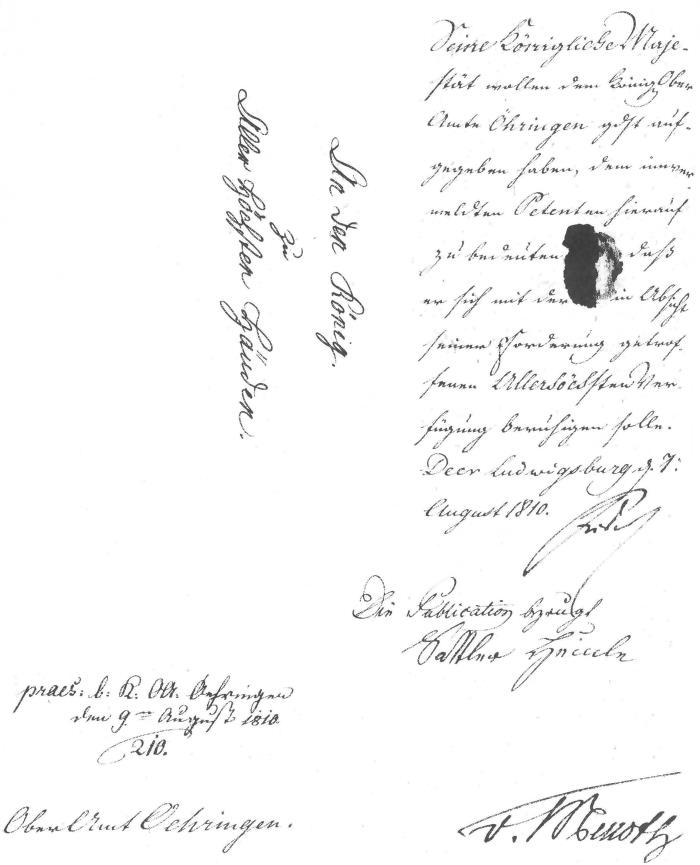 Seine Königliche Maje-
stät wollen dem König Ober
Amte Öhringen gdst auf-
gegeben haben, dem inver
meldten Petenten hierauf
zu bedeuten daß
er sich mit der in Absicht
seiner Forderung getrof-
fenen Allerhöchsten Ver
fügung beruhigen solle.
Decr Ludwigsburg d. 7:
August 1810.
Die Publication bezeugt
Sattler
An den König.
zu
Aller höchsten Händen.
praes: b. K: OA. Oehringen
den 9ten August 1810
210.
OberAmt Oehringen.